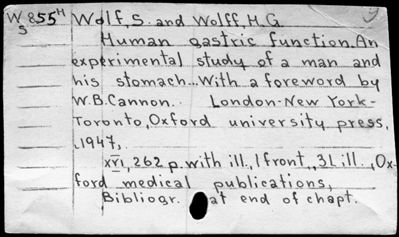 W 855H Wolf, S. and Wolff, H.G.
S
Human gastric function. An
experimental study of a man and
his stomach... With a foreword by
W.B.Cannon. London-New York-
Toronto, Oxford university press,
1947,
XVI, 262 p. with ill., 1 front., 3 l. ill., Ox-
ford medical publications,
Bibliogr. at end of chapt.